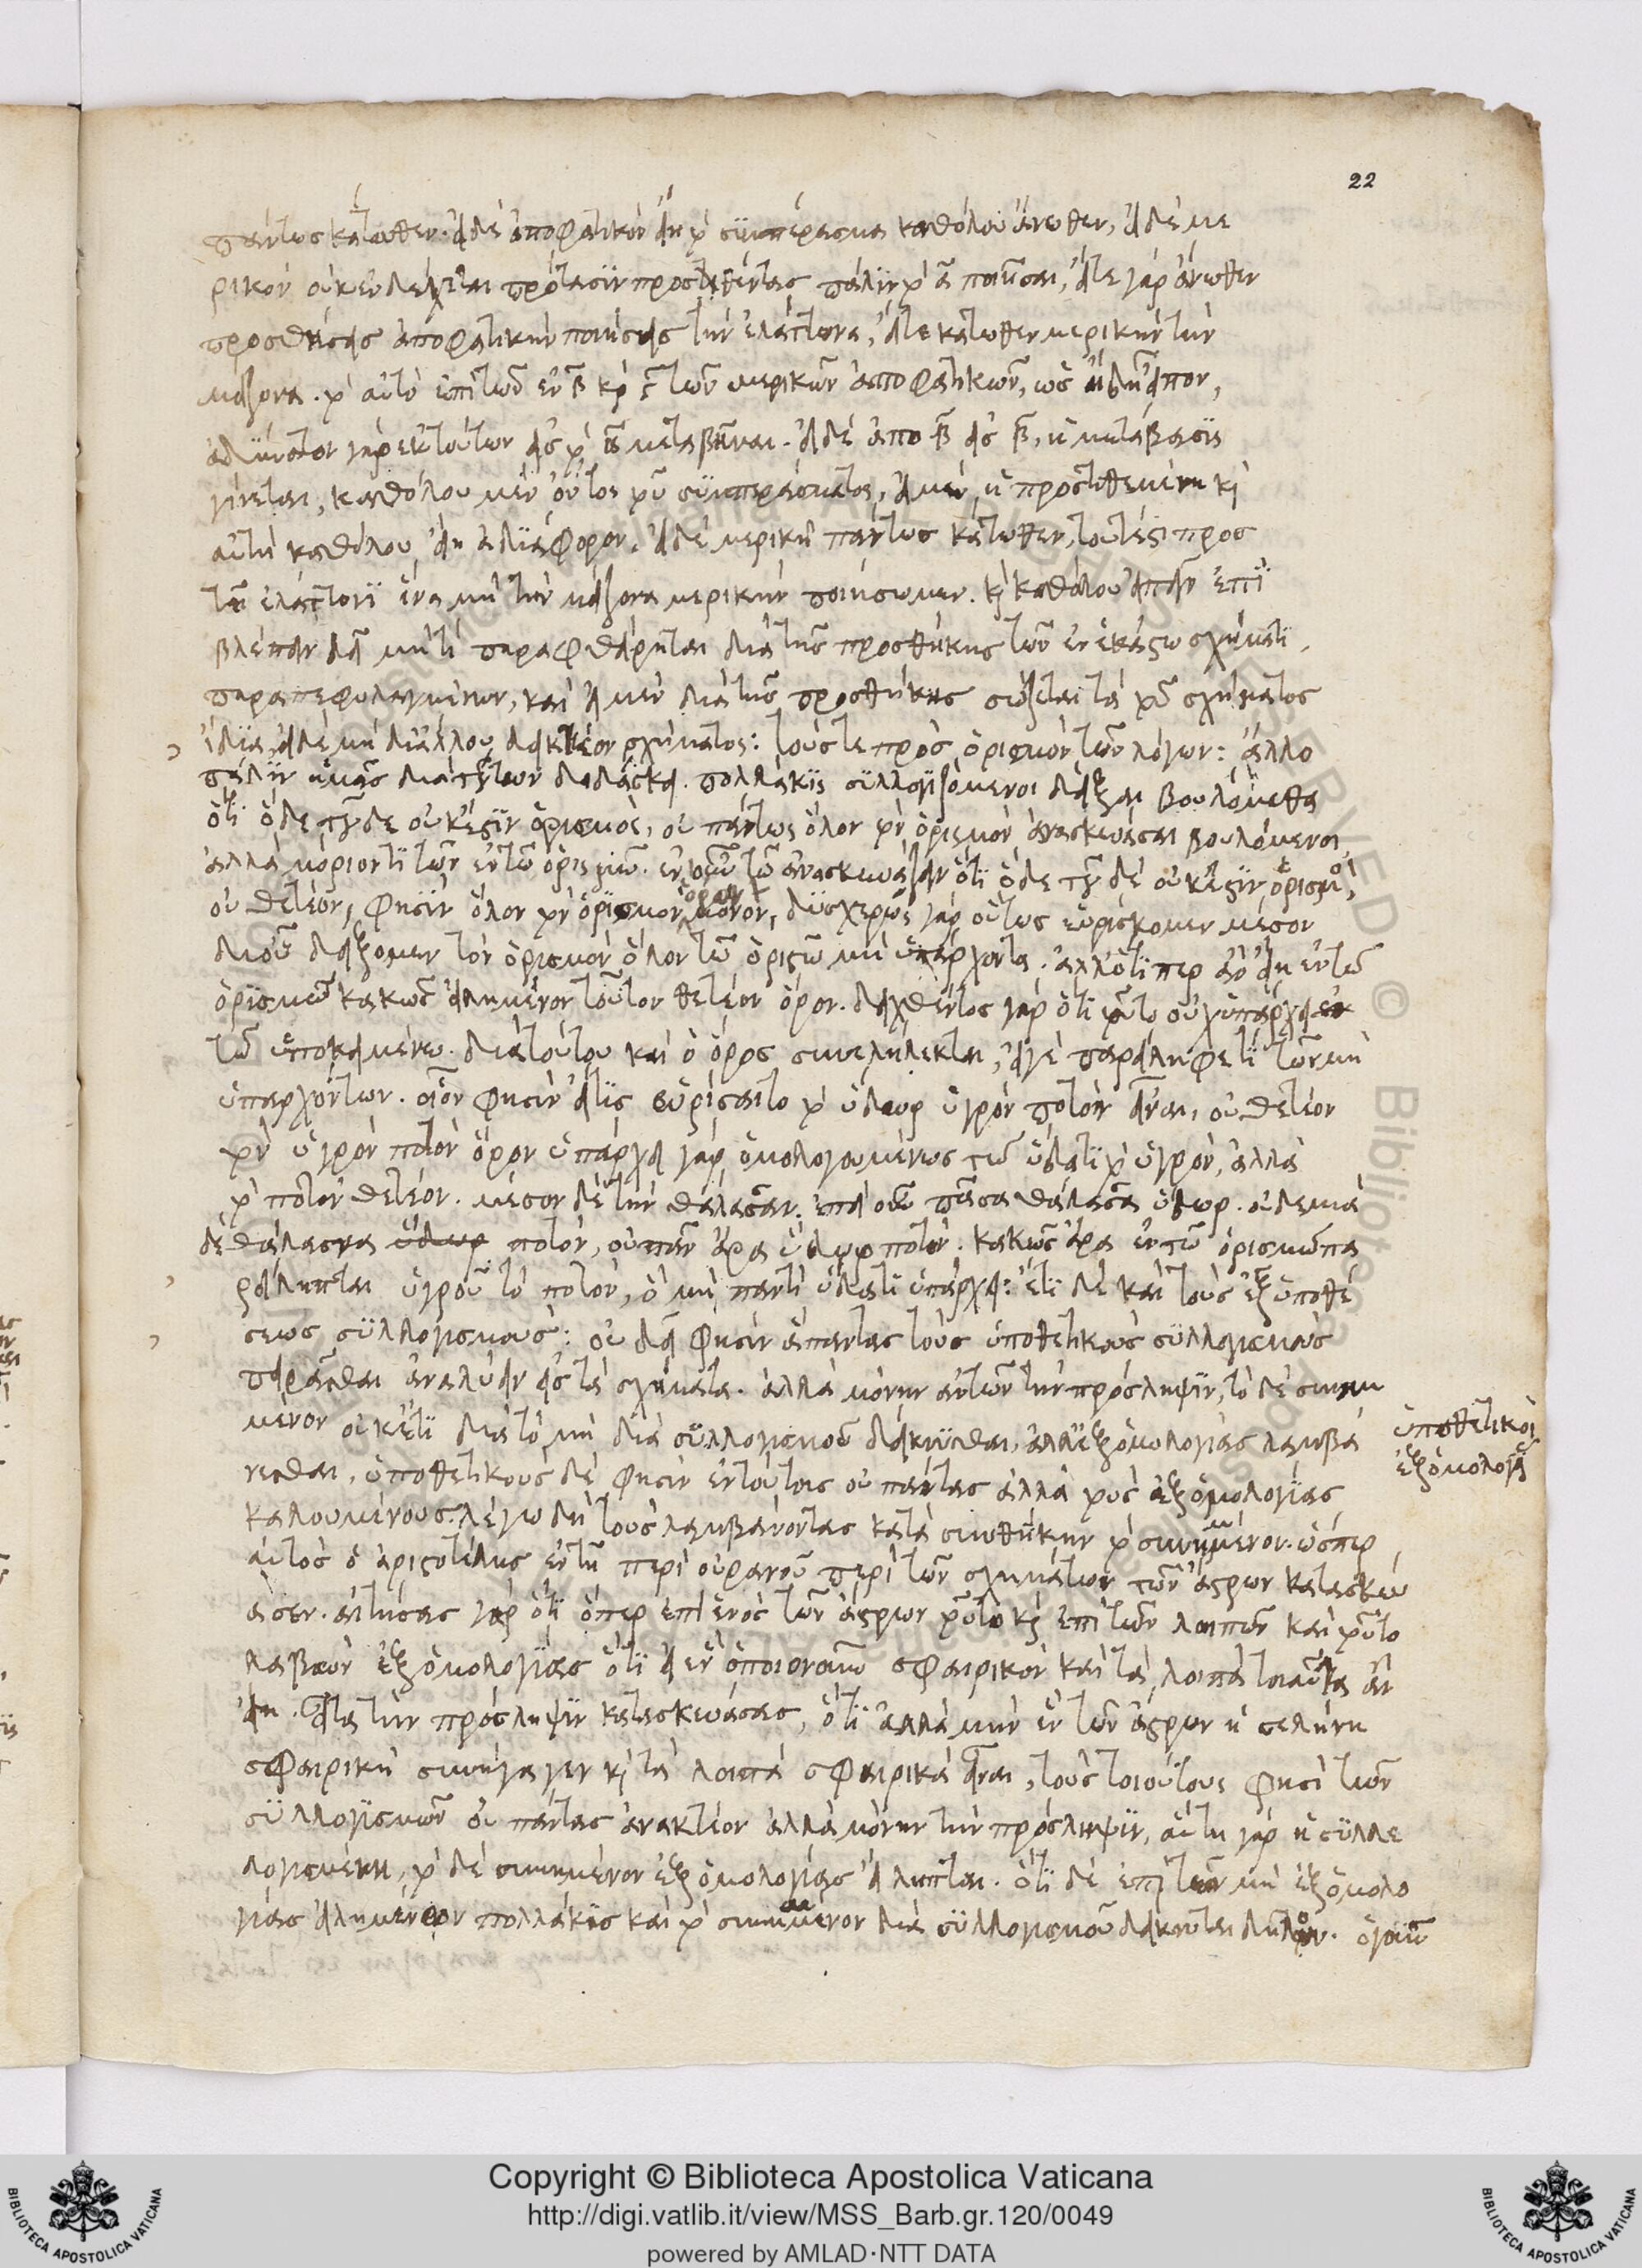 22
πάντως κάτωθεν. εἰ δὲ ἀποφατικὸν εἴη τὸ συμπέρασμα καθόλου ἄνωθεν, εἰ δὲ με
ρικὸν οὐκ ἐνδέχεται πρότασιν προστιθέντας πάλιν τὸ α ποιῆσαι, εἴτε γὰρ ἄνωθεν
προσθήσεις ἀποφατικὴν ποιήσεις τὴν ἐλάττονα, εἴτε κάτωθεν μερικὴν τὴν
μείζονα. τὸ αὐτὸ ἐπὶ τῶν ἐν β καὶ γ τῶν μερικῶν ἀποφατικῶν, ὡς ἤδη εἶπον,
ἀδύνατον γὰρ ἐκ τούτων εἰς τὸ α μεταβῆναι. εἰ δὲ ἀπὸ β εἰς β, ἡ μετάβασις
γίνεται, καθόλου μὲν ὄντος τοῦ συμπεράσματος, εἰ μὲν ἡ προστιθεμένη καὶ
αὐτὴ καθόλου εἴη ἀδιάφορον, εἰ δὲ μερικὴ πάντως κάτωθεν, τουτέστι πρὸς
τῇ ἐλάττονι ἵνα μὴ τὴν μείζονα μερικὴν ποιήσωμεν. καὶ καθόλου εἰπεῖν ἐπι
βλέπειν δεῖ μή τι παραφθείρηται διὰ τῆς προσθήκης τῶν ἐν ἑκάστω σχήματι
παραπεφυλαγμένων, καὶ εἰ μὲν διὰ τῆς προσθήκης σώζεται τὰ τοῦ σχήματος
ἴδια, εἰ δὲ μὴ δι' ἄλλου δεικτέον σχήματος: τούς τε πρὸς ὁρισμὸν τῶν λόγων: ἄλλο
πάλιν ἡμᾶς διὰ τούτων διδάσκει. πολλάκις συλλογιζόμενοι δεῖξαι βουλόμεθα
ὅτι ὅδε τοῦδε οὐκ ἔστιν ὁρισμὸς, οὐ πάντως ὅλον τὸν ὁρισμὸν ἀνασκευάσαι βουλόμενοι,
ἀλλὰ μόριόν τι τῶν ἐν τῶ ὁρισμῶ. ἐν οὖν τῶ ἀνασκευάζειν ὅτι ὅδε τοῦδε οὐκ ἔστιν ὁρισμὸς,
οὐ θετέον, φησὶν ὅλον τὸν ὁρισμὸν ὅρον μόνον, δυσχερῶς γὰρ οὕτως εὑρίσκομεν μέσον
δι' οὗ δείξομεν τὸν ὁρισμὸν ὅλον τῶ ὁριστῶ μὴ ὑπάρχοντα. ἀλλ' ὅτι περ ἂν εἴη ἐν τῶ
ὁρισμῶ κακῶς εἰλημένον τοῦτον θετέον ὅρον. δειχθέντος γὰρ ὅτι τοῦτο οὐχ ὑπάρχει
τῶ ὑποκειμένω. διὰ τούτου καὶ ὁ ὅρος συνελήλεκται, εἴγε παρείληφέ τι τῶν μὴ
ὑπαρχόντων. οἷον φησὶν εἴ τις ὁρίσαιτο τὸ ὕδωρ ὑγρὸν ποτὸν εἶναι, οὐ θετέον
τὸν ὑγρὸν ποτὸν ὅρον ὑπάρχει γὰρ ὁμολογουμένως τῶ ὕδατι τὸ ὑγρὸν, ἀλλὰ
τὸ ποτὸν θετέον. μέσον δὲ τὴν θάλασσαν. ἐπεὶ οὖν πᾶσα θάλασσα ὕδωρ. οὐδεμία
δὲ θάλασσα ὕδωρ ποτὸν, οὐ πᾶν ἄρα ὕδωρ ποτὸν. κακῶς ἄρα ἐν τῶ ὁρισμῶ πα
ρείληπται ὑγροῦ τὸ ποτὸν, ὃ μὴ παντὶ ὕδατι ὑπάρχει: ἔτι δὲ καὶ τοὺς ἐξ ὑποθέ
σεως συλλογισμοὺς: οὐ δεῖ φησὶν ἅπαντας τοὺς ὑποθετικοὺς συλλογισμοὺς
πειρᾶσθαι ἀναλύειν εἰς τὰ σχήματα. ἀλλὰ μόνην αὐτῶν τὴν πρόσληψιν, τὸ δὲ συνημ
μένον οὐκέτι διὰ τὸ μὴ διὰ συλλογισμοῦ δείκνυσθαι, ἀλλ' ἐξ ὁμολογίας λαμβά
νεσθαι, ὑποθετικοὺς δὲ φησὶν ἐν τούτοις οὐ πάντας ἀλλὰ τοὺς ἐξ ὁμολογίας
ὑποθετικοὶ
ἐξ ὁμολογίας
καλουμένους. λέγω δὴ τοὺς λαμβάνοντας κατὰ συνθήκην τὸ συνημμένον. ὥσπερ
αὐτὸς ὁ ἀριστοτέλης ἐν τῆ περὶ οὐρανοῦ περὶ τῶν σχημάτων τῶν ἄστρων κατεσκεύ
ασεν. αἰτήσας γὰρ ὅτι ὅπερ ἐπὶ ἑνὸς τῶν ἄστρων τοῦτο καὶ ἐπὶ τῶν λοιπῶν καὶ τοῦτο
λαβὼν ἐξ ὁμολογίας ὅτι εἰ ἓν ὁποιονοῦν σφαιρικὸν καὶ τὰ λοιπὰ τοιαῦτα ἂν
εἴη. εἶτα τὴν πρόσληψιν κατασκευάσας, ὅτι ἀλλὰ μὴν ἓν τῶν ἄστρων ἡ σελήνη
σφαιρικὴ συνήγαγεν καὶ τὰ λοιπὰ σφαιρικὰ εἶναι, τοὺς τοιούτους φησὶ τῶν
συλλογισμῶν οὐ πάντας ἀνακτέον ἀλλὰ μόνην τὴν πρόσληψιν, αὕτη γὰρ ἡ συλλε
λογισμένη, τὸ δὲ συνημένον ἐξ ὁμολογίας εἴληπται. ὅτι δὲ ἐπὶ τῶν μὴ ἐξ ὁμολο
γίας εἰλημένων πολλάκις καὶ τὸ συνημμένον διὰ συλλογισμοῦ δείκνυται δῆλον. ὁ γοῦν
Copyright © Biblioteca Apostolica Vaticana
http://digi.vatlib.it/view/MSS_Barb.gr.120/0049
powered by AMLAD·NTT DATA
BIBLIOTECA APOSTOLICA VATICANA
BIBLIOTECA APOSTOLICA VATICANA